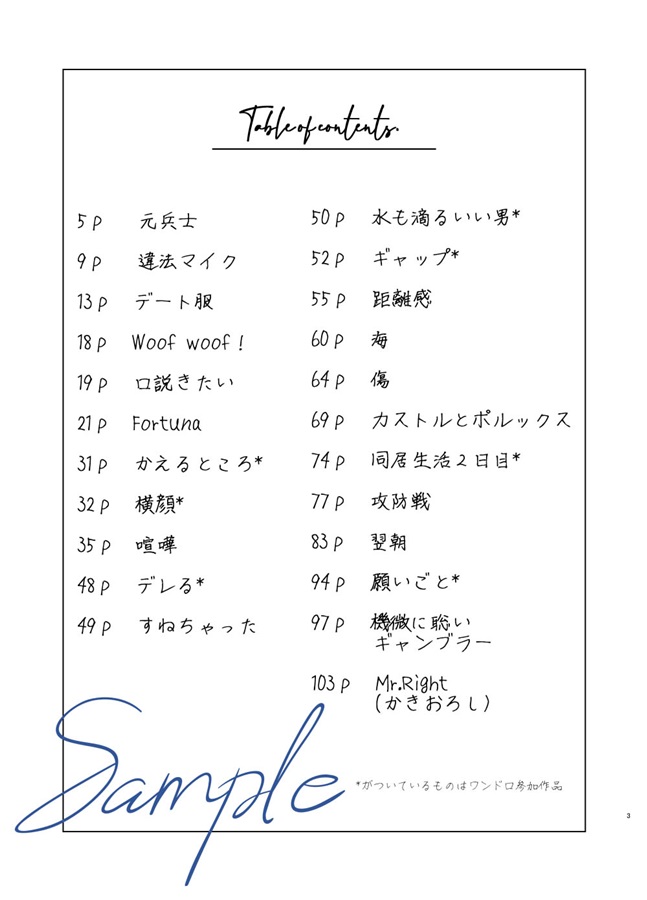 Table of contents.
5p 元兵士
9p 違法マイク
13p デート服
18p Woof woof!
19p 口説きたい
21p Fortuna
31p かえるところ*
32p 横顔*
35p 喧嘩
48p デレる*
49p すねちゃった
50p 水も滴るいい男*
52p ギャップ*
55p 距離感
60p 海
64p 傷
69p カストルとポルックス
74p 同居生活2日目*
77p 攻防戦
83p 翌朝
94p 願いごと*
97p 機微に聡い
ギャンブラー
103p Mr.Right
(かきおろし)
*がついているものはワンドロ参加作品
Sample
3